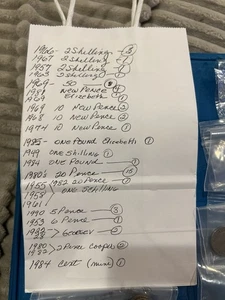 1966 - 2 Shilling - 3
1967 2 Shilling
1957 2 Shilling
1963 5 Shilling 1
1969 - 50
1989 New Pence 4
1969 Elizabeth 1
1969 10 New Pence 2
1968 10 New Pence 2
1974 10 New Pence 1
1985 - One Pound Elizabeth 1
1949 One Shilling 1
1984 One Pound 1
1980's 20 Pence 15
1982 20 Pence 1
1955
1958 One Shilling
1961
1990 5 Pence 3
1953 6 Pence 1
1928 George V 2
1980 2 Pence Copper 2
1984 Cent (mini) 1